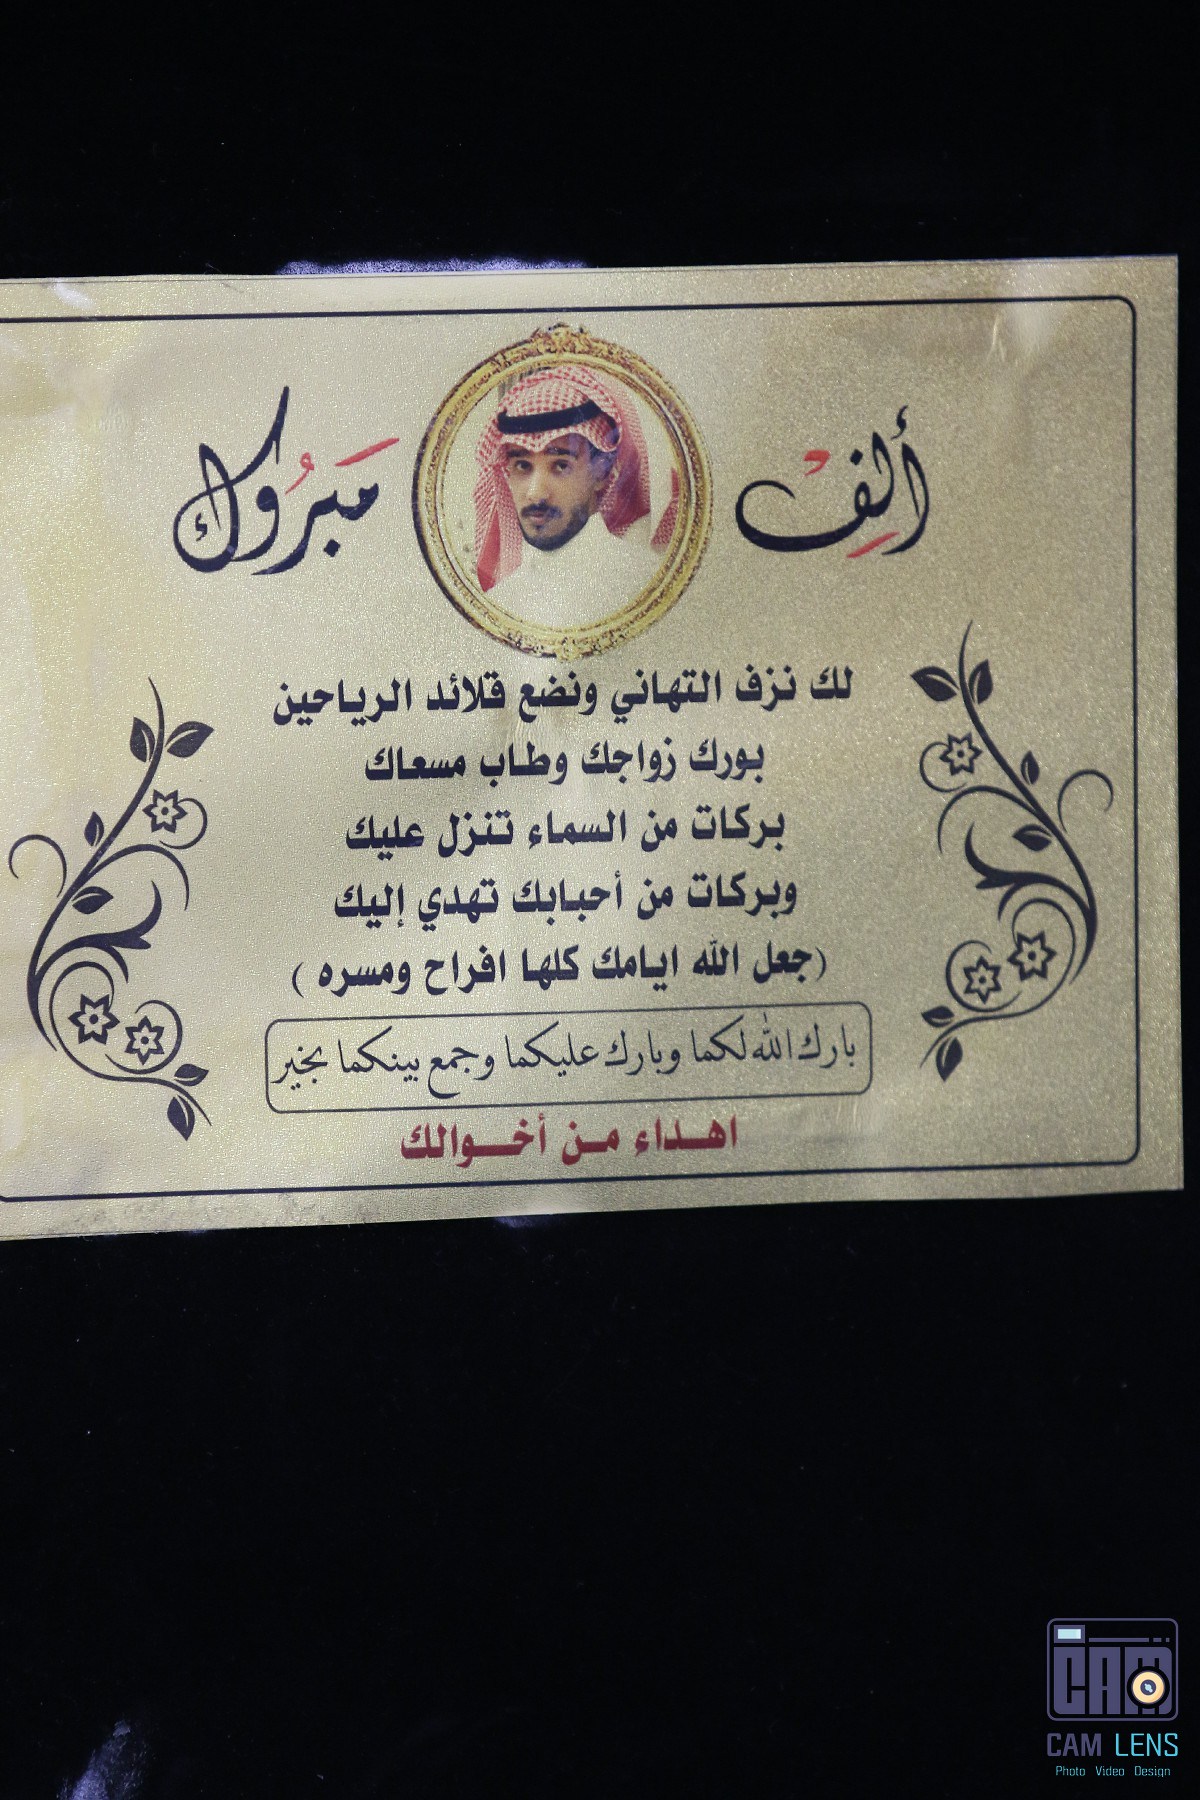 ألفِ مَبرُوك
لك نزف التهاني ونضع قلائد الرياحين
بورك زواجك وطاب مسعاك
بركات من السماء تنزل عليك
وبركات من أحبابك تهدي إليك
(جعل الله ايامك كلها افراح ومسره )
بارك الله لكما وبارك عليكما وجمع بينكما بخير
اهداء من أخوالك
CAM
CAM LENS
Photo Video Design